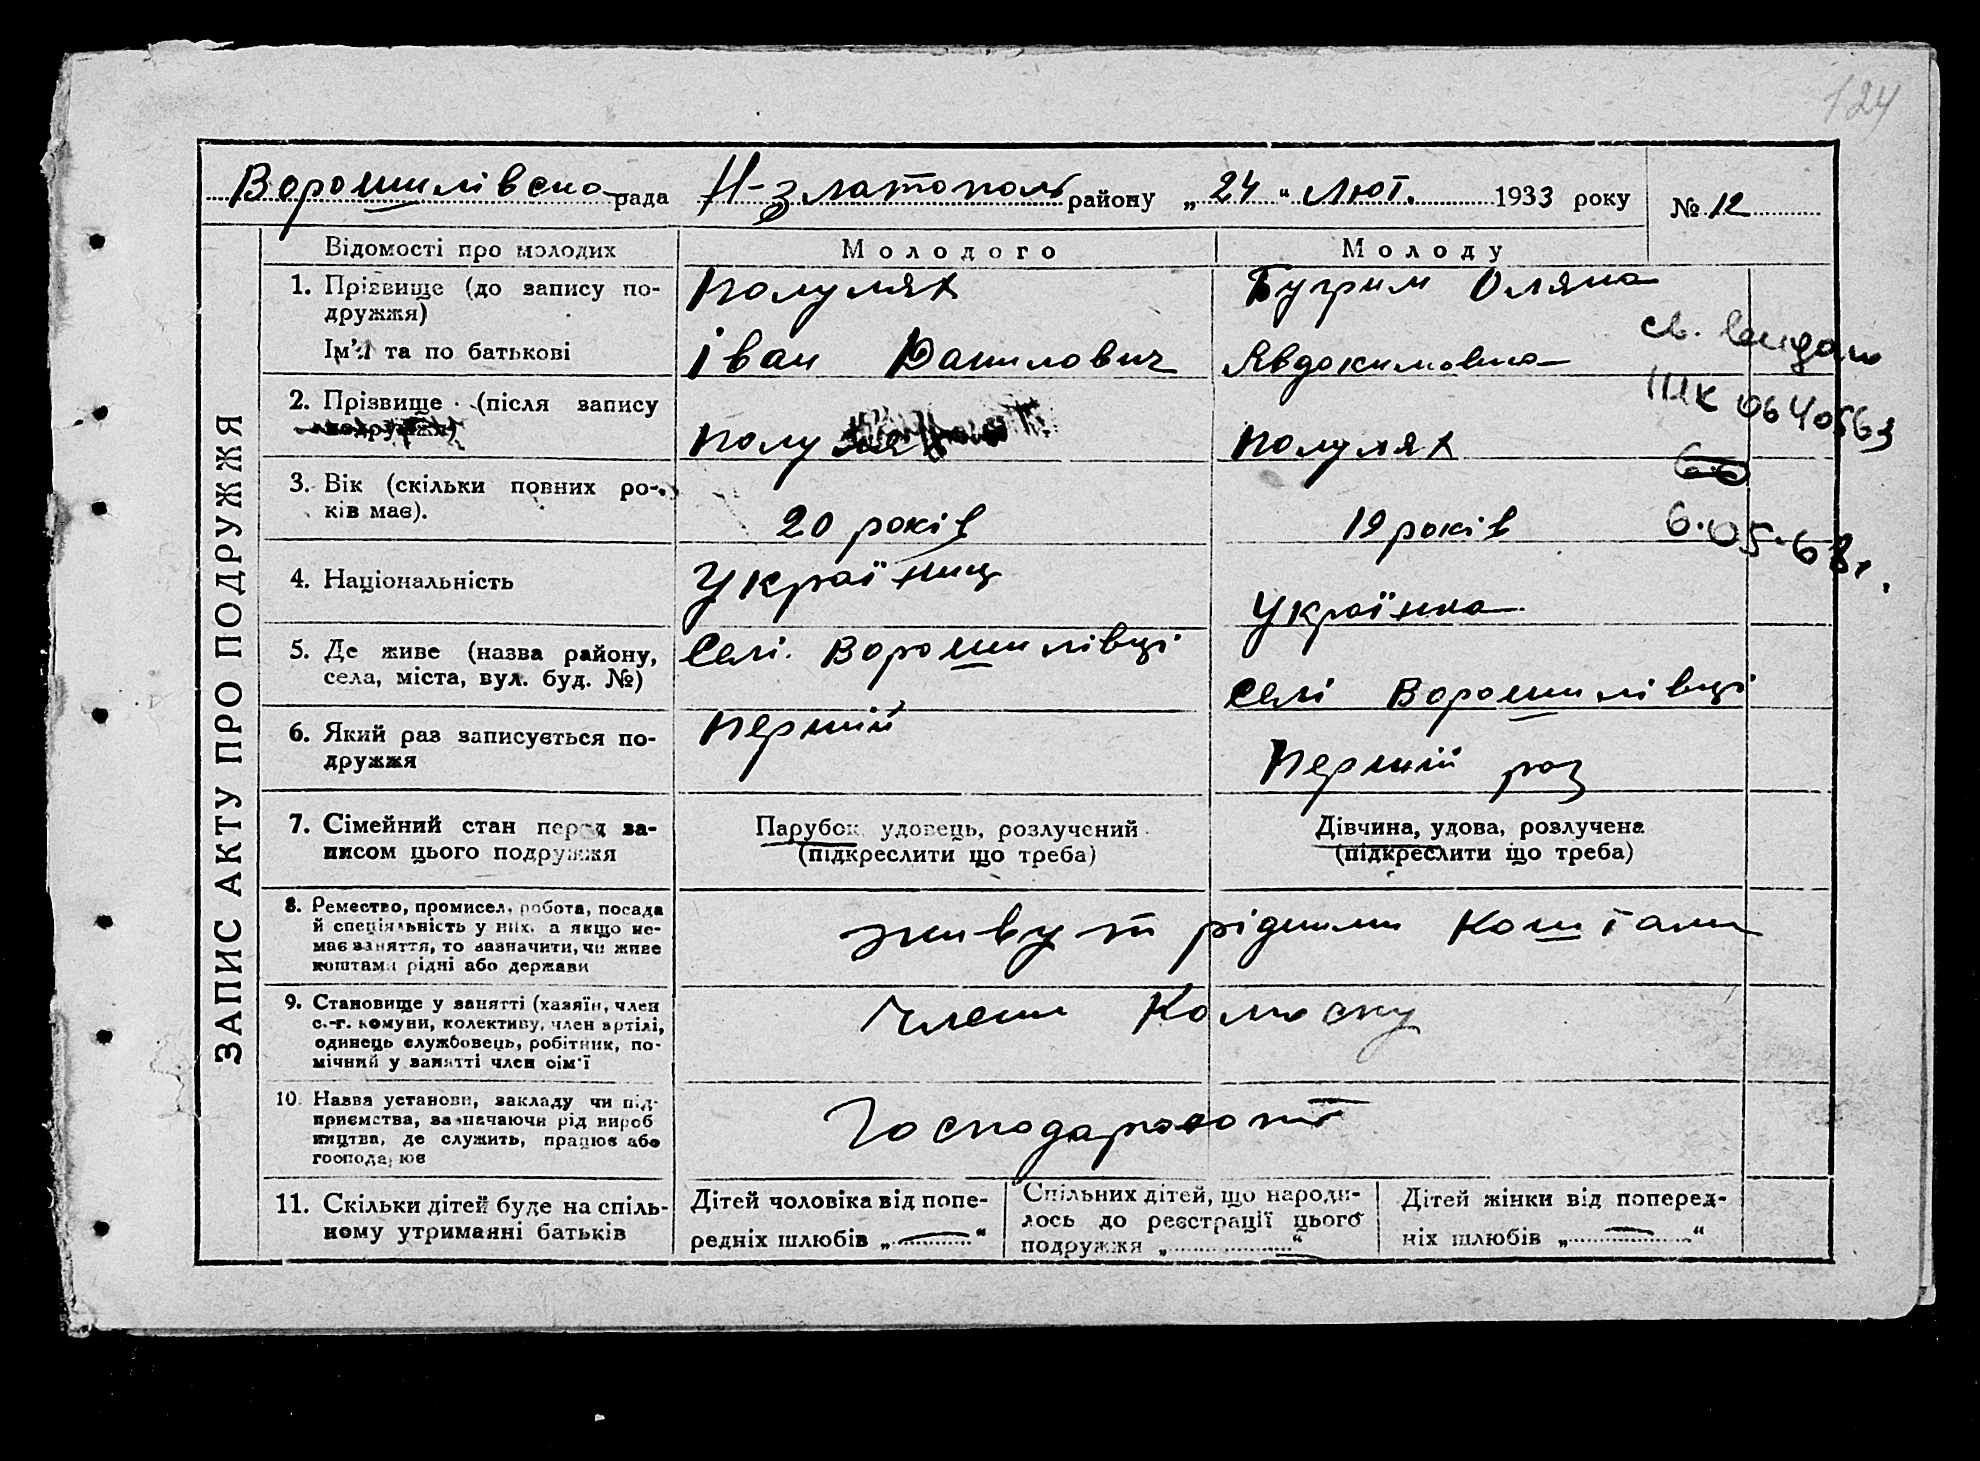 124
Ворошилівска рада Н-златополь району „24“ Лют. 1933 року № 12
ЗАПИС АКТУ ПРО ПОДРУЖЖЯ
Відомості про молодих Молодого Молоду
1. Прізвище (до запису по-
дружжя)
Ім'я та по батькові
Полулях
Іван Данилович
Бугрим Оляна
Явдокимовна
св. выдано
ІІІК 0640563
6.05.68г.
2. Прізвище (після запису
подружжя)
Полу
Полулях
3. Вік (скільки повних ро-
ків має).
20 років
19 років
4. Національність
Українец
Українка
5. Де живе (назва району,
села, міста, вул. буд. №)
Селі. Ворошилівці
Селі Ворошилівці
6. Який раз записується по-
дружжя
Перший
Перший раз
7. Сімейний стан перед за-
писом цього подружжя
Парубок, удовець, розлучений
(підкреслити що треба)
Дівчина, удова, розлучена
(підкреслити що треба)
8. Ремество, промисел, робота, посада
й спеціяльність у них, а якщо не-
має заняття, то зазначити, чи живе
коштами рідні або держави
живут рідними Коштами
9. Становище у занятті (хазяїн, член
с.-г. комуни, колективу, член артілі,
одинець службовець, робітник, по-
мічний у занятті член сім'ї
Члени
10. Назва установи, закладу чи під-
приємства, зазначаючи рід вироб
ництва, де служить, працює або
господарює
11. Скільки дітей буде на спіль-
ному утриманні батьків
Дітей чоловіка від попе-
редніх шлюбів „—“
Спільних дітей, що народи-
лось до реєстрації цього
подружжя „—“
Дітей жінки від поперед-
ніх шлюбів „—“